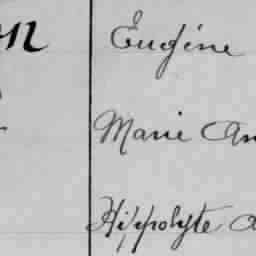 Eugéne
Marie An
Hippolyte